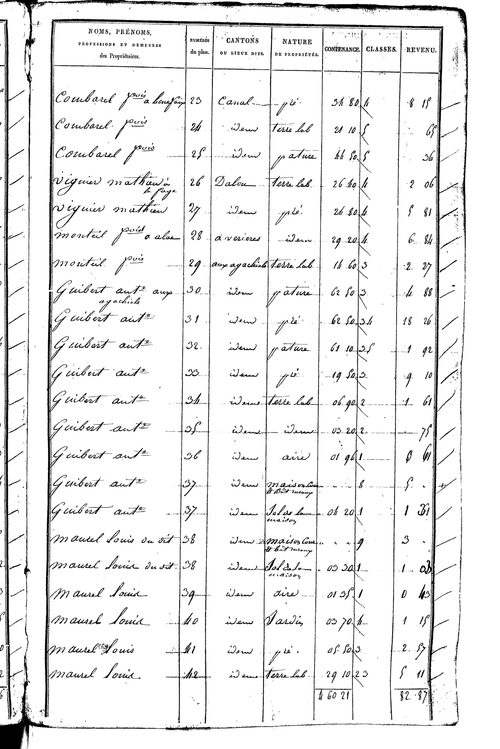 NOMS, PRÉNOMS, PROFESSIONS ET DEMEURES des Propriétaires. NUMÉROS du plan. CANTONS OU LIEUX DITS. NATURE DE PROPRIÉTÉS. CONTENANCE. CLASSES. REVENU.
Combarel pois a 23 Canal pré 34 80 4 8 15
Combarel pois 24 idem terre lab 21 10 5 65
Combarel pois 25 idem pature 44 50 5 36
Viguier mathieu à la fage 26 Dalou terre lab 26 40 4 2 06
Viguier mathieu 27 idem pré 24 80 4 5 81
monteil pois a aloe 28 a verieres idem 29 20 4 6 84
monteil pois 29 aux agachiols terre lab 14 60 3 2 27
Guibert ante aux agachiols 30 idem pature 62 50 3 4 88
Guibert ante 31 idem pré 62 50 3 4 18 26
Guibert ante 32 idem pature 61 10 3 5 1 92
Guibert ante 33 idem pré 19 50 3 9 10
Guibert ante 34 idem terre lab 06 90 2 1 61
Guibert ante 35 idem idem 03 20 2 75
Guibert ante 36 idem aire 01 96 1 0 61
Guibert ante 37 idem maison 8 5
Guibert ante 37 idem Sol de la maison 04 20 1 1 31
maurel louis du dit 38 idem maison 9 3
maurel louis du dit 38 idem Sol de la maison 03 30 1 1 03
maurel louis 39 idem aire 01 35 1 0 43
maurel louis 40 idem Jardin 03 70 4 1 15
maurel louis 41 idem pré 05 50 3 2 57
maurel louis 42 idem terre lab 29 10 2 3 5 11
4 60 21 82 87